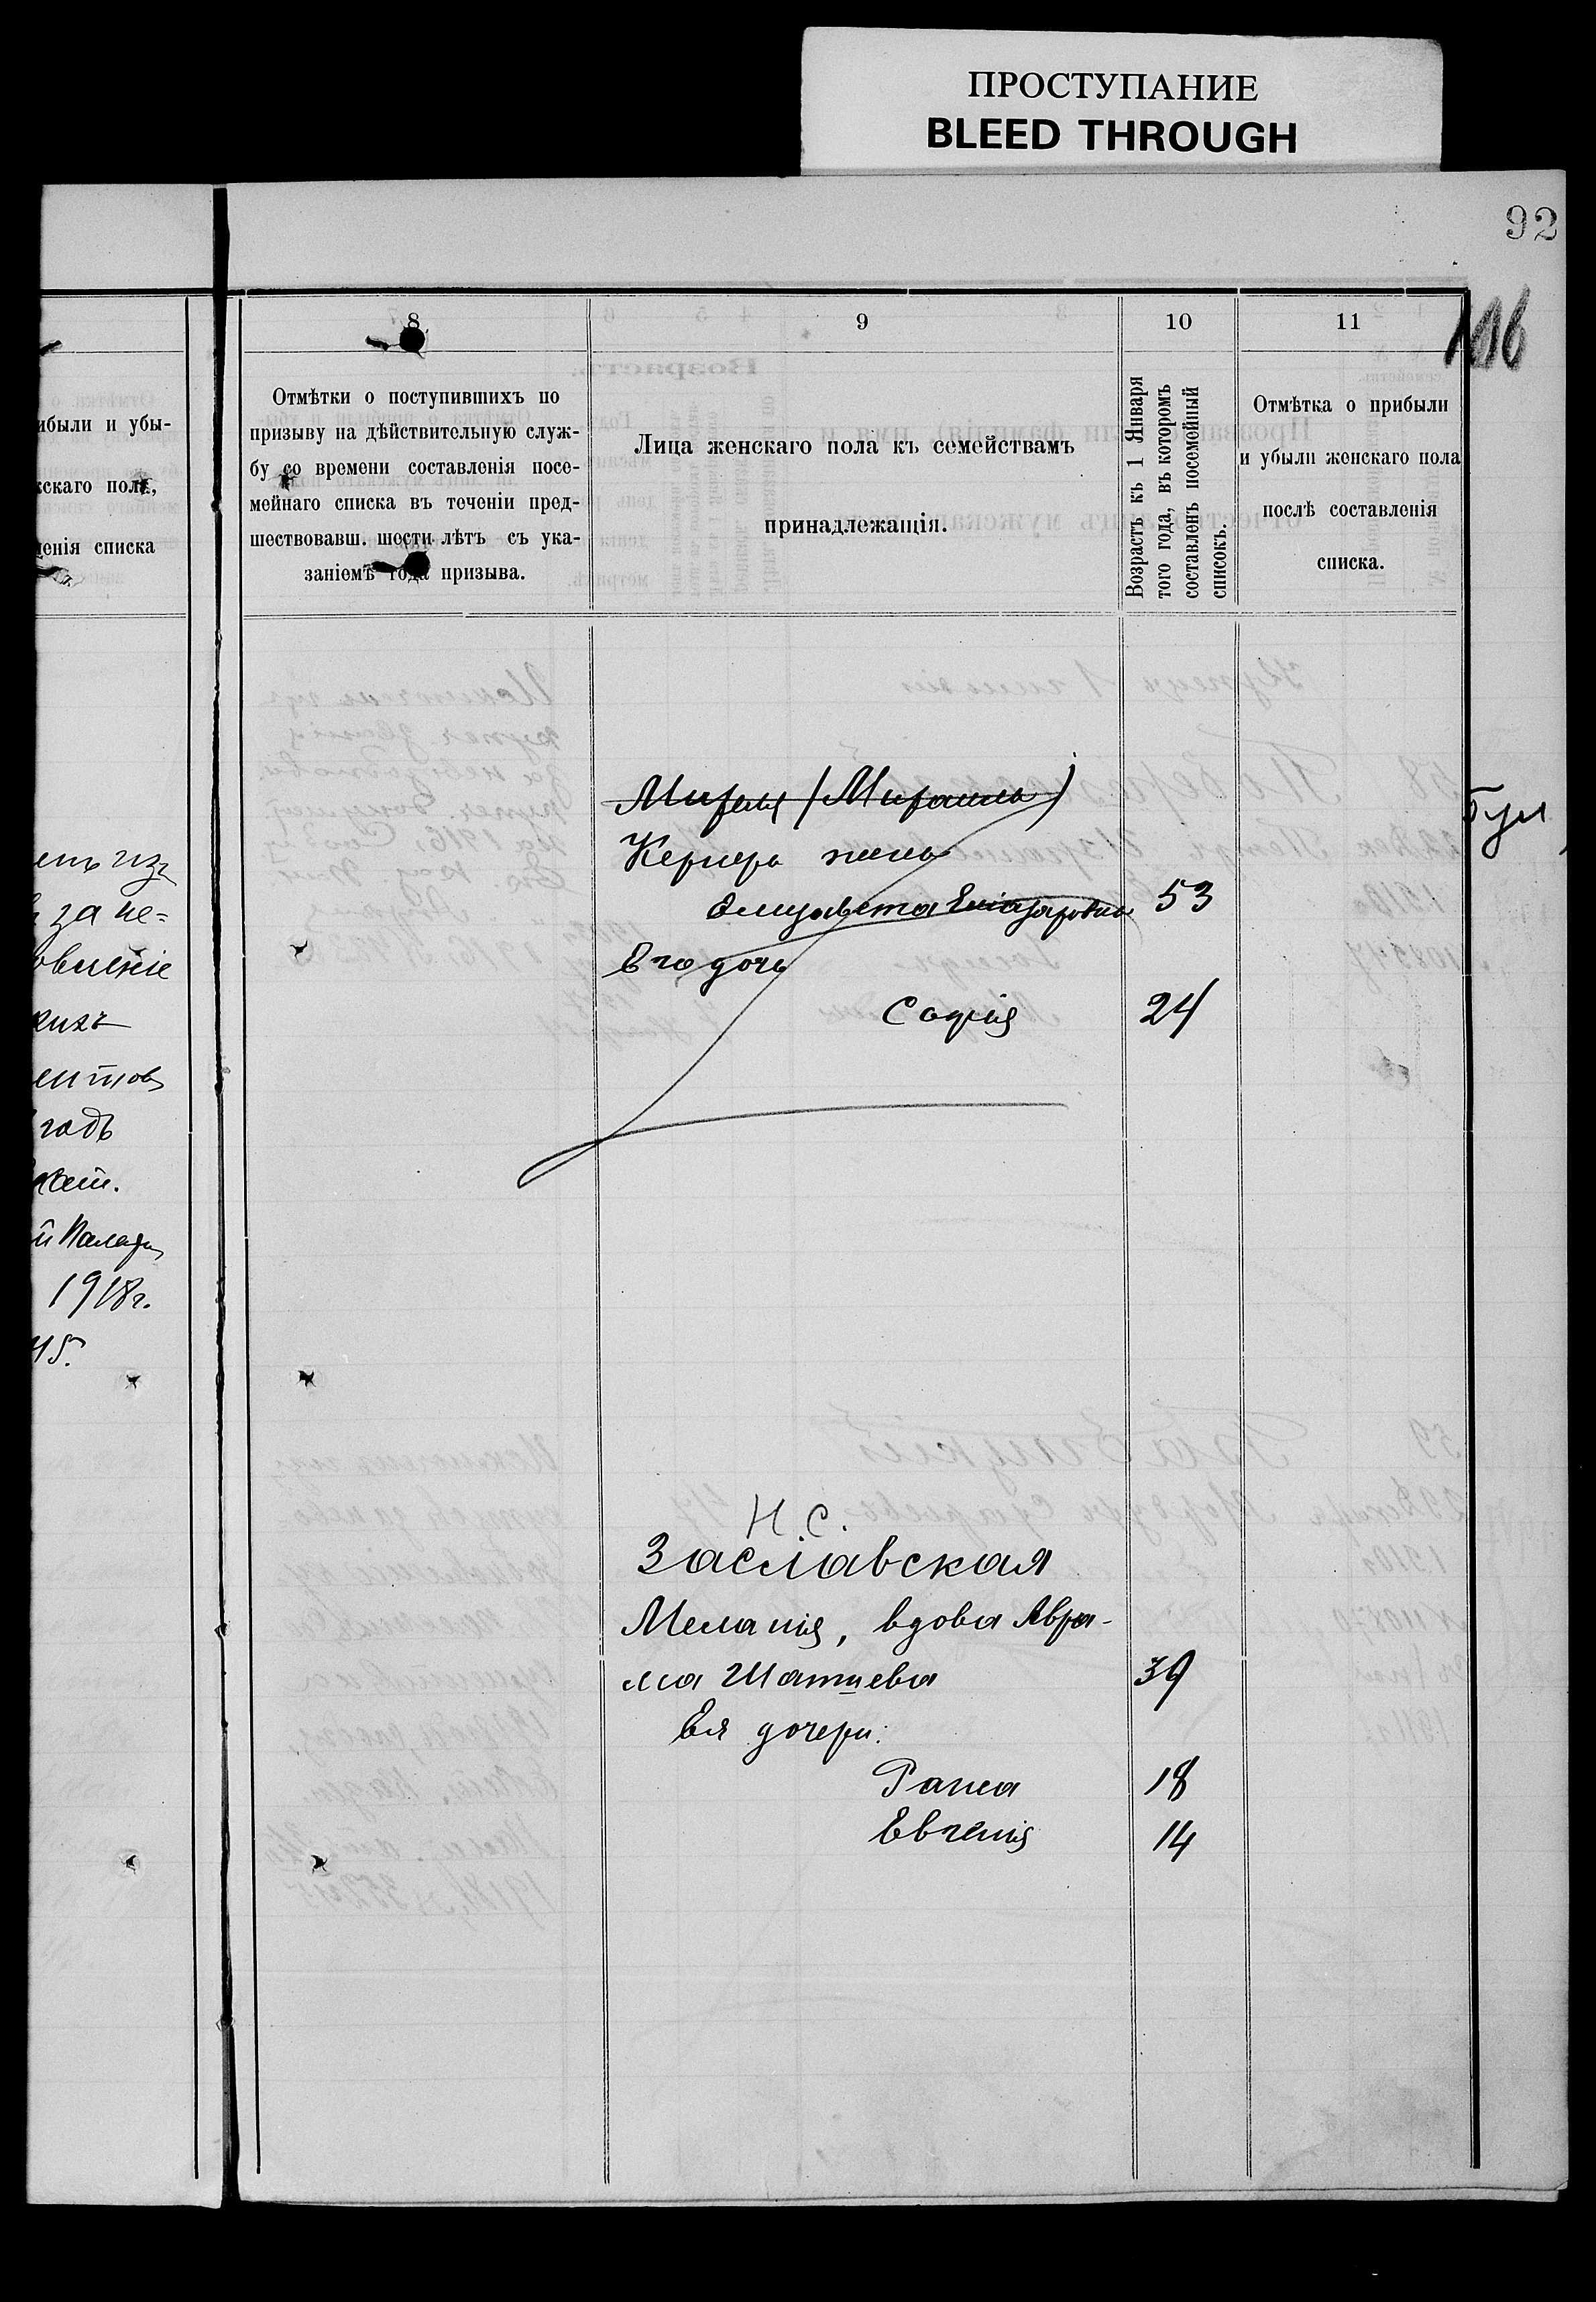 ПРОСТУПАНИЕ
BLEED THROUGH
92
106
ибыли и убы-
скаго пола,
ленія списка
8
9
10
11
Отмѣтки о поступившихъ по
призыву на дѣйствительную служ-
бу со времени составленія посе-
мейнаго списка въ теченіи пред-
шествовавш. шести лѣтъ съ ука-
заніемъ года призыва.
Лица женскаго пола къ семействамъ
принадлежащія.
Возрастъ къ 1 Января
того года, въ которомъ
составленъ посемейный
списокъ.
Отмѣтка о прибыли
и убыли женскаго пола
послѣ составленія
списка.
енъ изъ
за не=
овленіе
ентовъ
годъ
й Палаты
1918г.
45.
Бул
Кернеръ жена
Елизавета Еліазаровна 53
Его дочь
Софія 24
Н. С.
Заславская
Меланія, вдова Авра-
ма Шатцева 39
Ея дочери:
Раиса 18
Евгенія 14